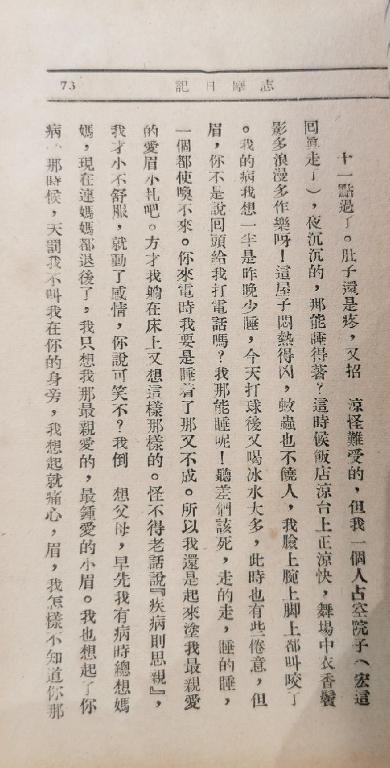 志摩日記
73
十一點過了。肚子還是疼，又招　涼怪難受的，但我一個人占空院子（宏這
回眞走了），夜沉沉的，那能睡得著？這時候飯店涼台上正涼快，舞場中衣香鬢
影多浪漫多作樂呀！這屋子悶熱得凶，蚊蟲也不饒人，我臉上腕上脚上都叫咬了
。我的病我想一半是昨晚少睡，今天打球後又喝冰水大多，此時也有些倦意，但
眉，你不是說回頭給我打電話嗎？我那能睡呢！聽差們該死，走的走，睡的睡，
一個都使喚不來。你來電時我要是睡着了那又不成。所以我還是起來塗我最親愛
的愛眉小札吧。方才我躺在床上又想這樣那樣的。怪不得老話說『疾病則思親』，
我才小不舒服，就動了感情，你說可笑不？我倒　想父母，早先我有病時總想媽
媽，現在連媽媽都退後了，我只想我那最親愛的，最鍾愛的小眉。我也想起了你
病、那時候，天罰我不叫我在你的身旁，我想起就痛心，眉，我怎樣不知道你那